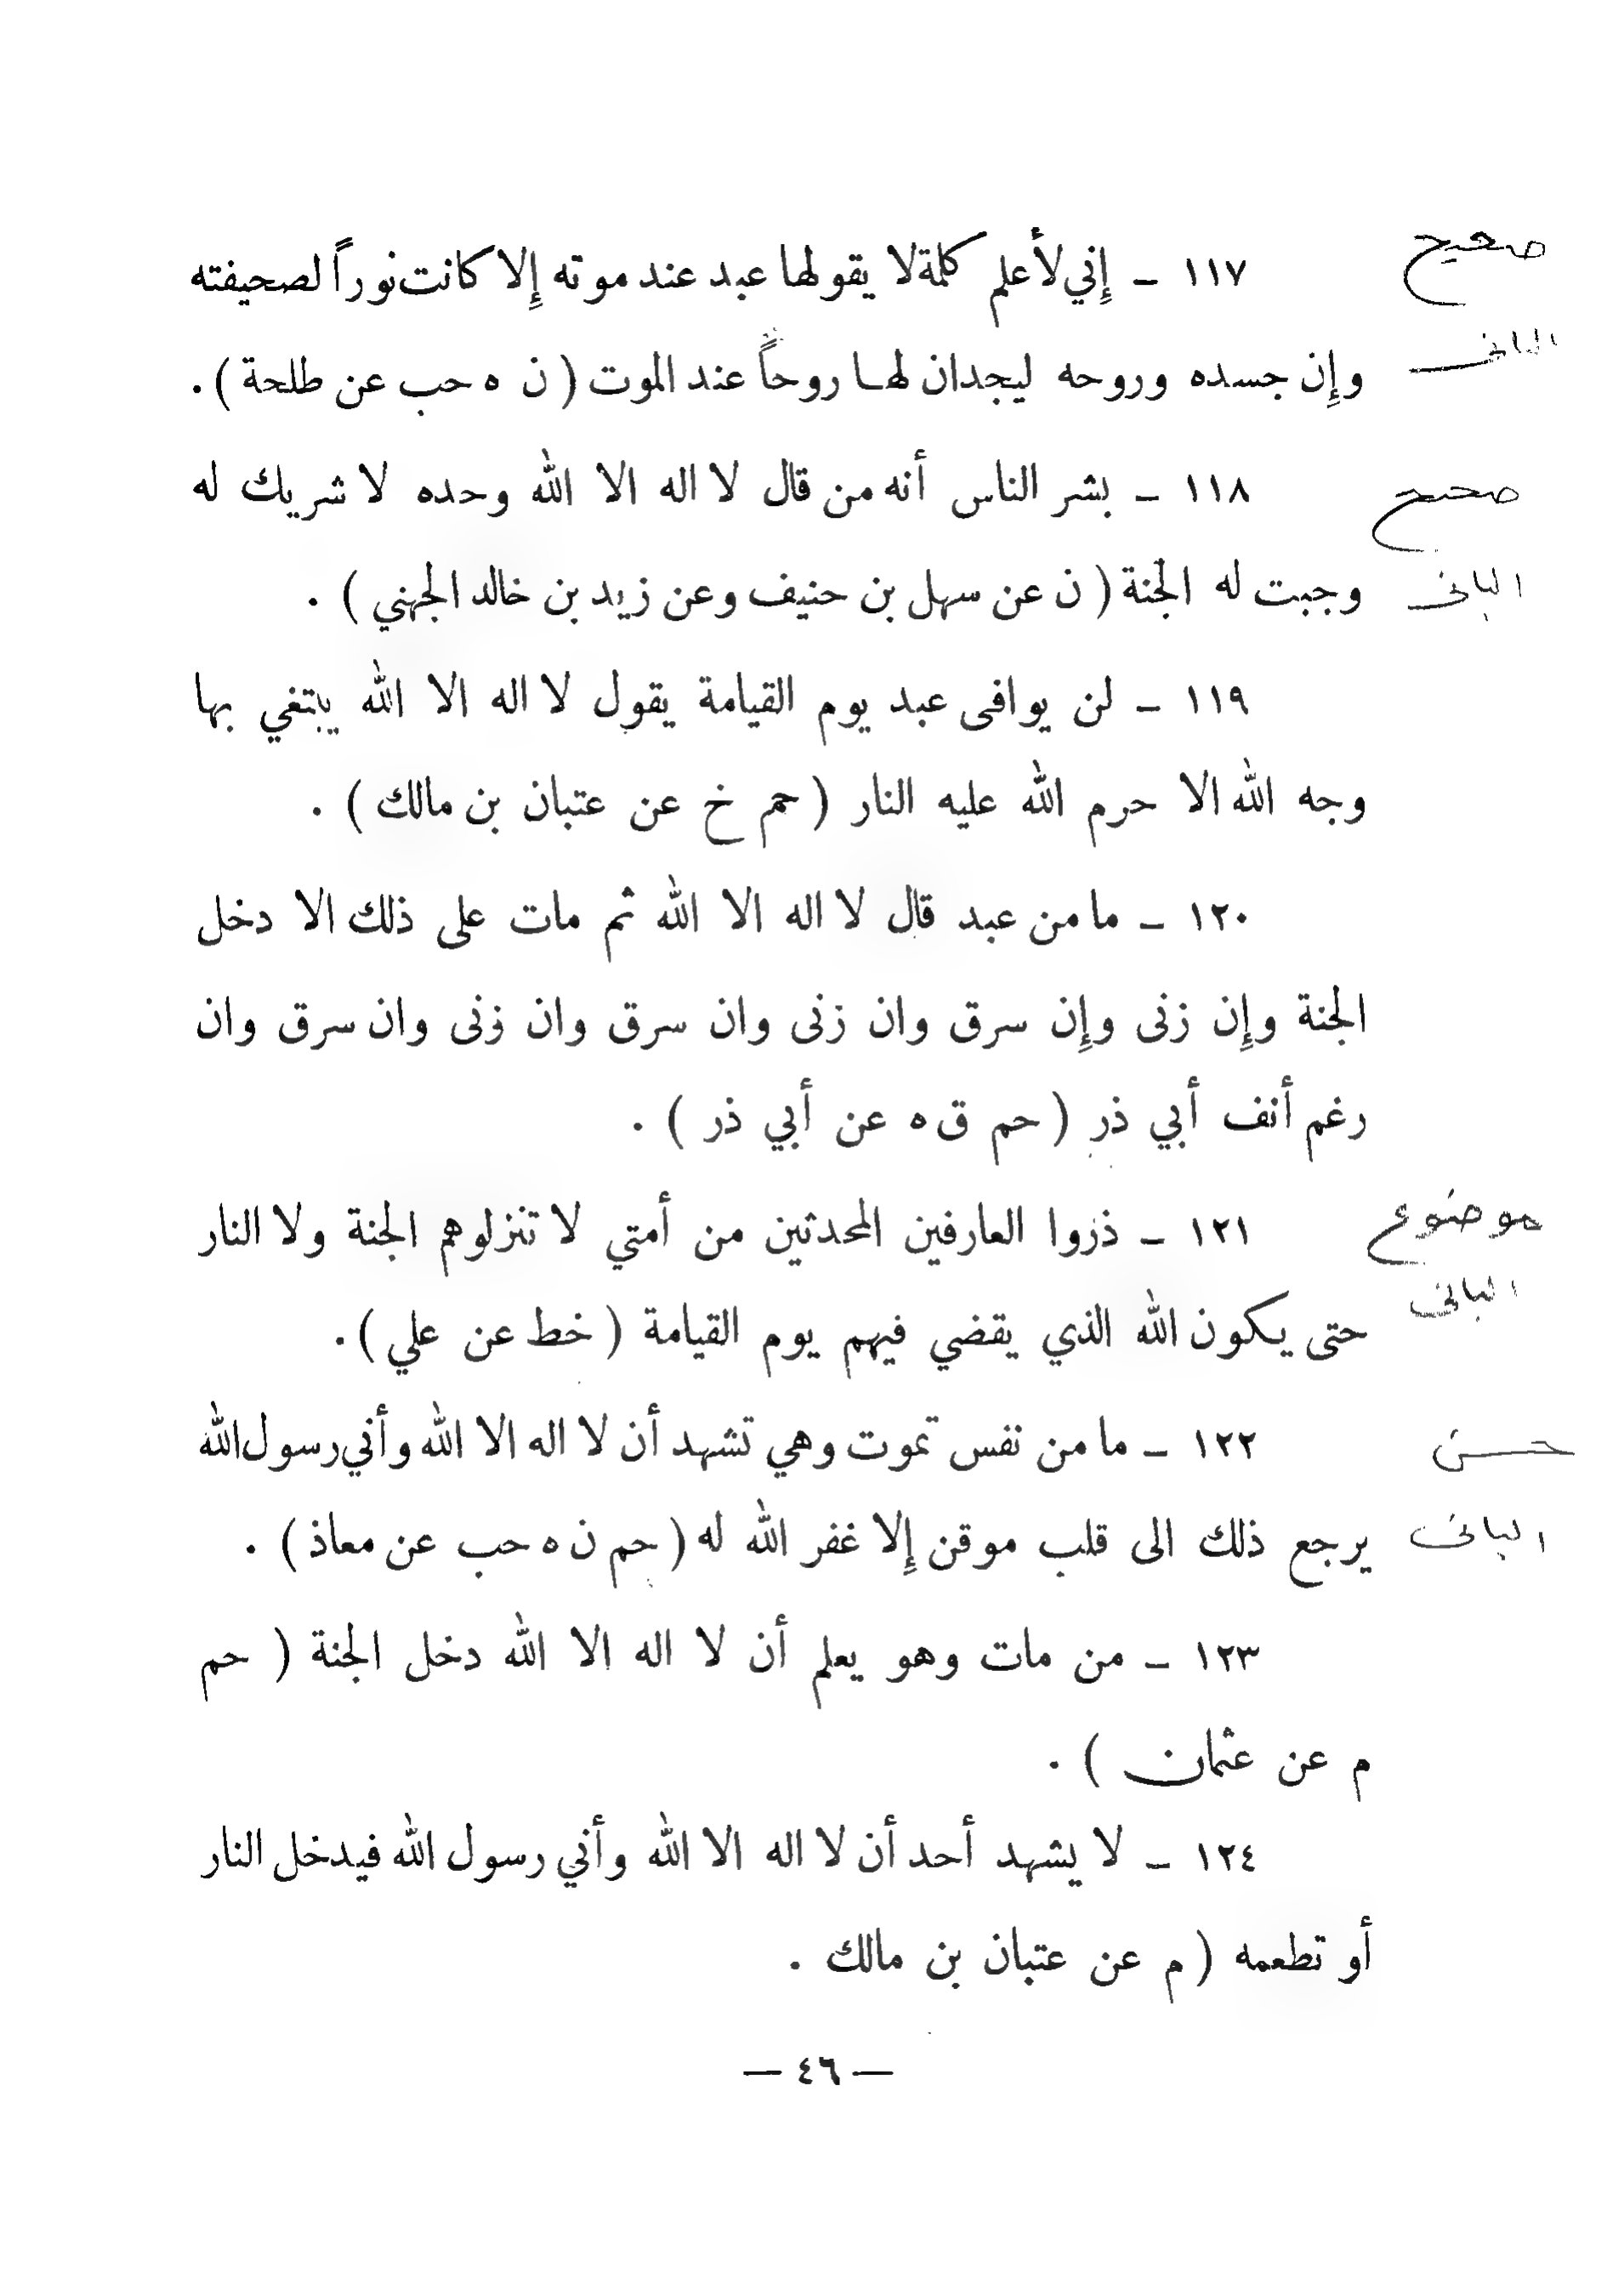 صحيح
١١٧ ـ إِني لأعلم كلمة لا يقولها عبد عند موته إِلا كانت نوراً لصحيفته
البانى
وإِن جسده وروحه ليجدان لهـا روحاً عند الموت ( ن ه حب عن طلحة ) .
صحيح
١١٨ ـ بشر الناس أنه من قال لا اله الا الله وحده لا شريك له
البانى
وجبت له الجنة ( ن عن سهل بن حنيف وعن زيد بن خالد الجهني ) .
١١٩ ـ لن يوافى عبد يوم القيامة يقول لا اله الا الله يبتغي بها
وجه الله الا حرم الله عليه النار ( حم خ عن عتبان بن مالك ) .
١٢٠ ـ ما من عبد قال لا اله الا الله ثم مات على ذلك الا دخل
الجنة وإِن زنى وإِن سرق وان زنى وان سرق وان زنى وان سرق وان
رغم أنف أبي ذر ( حم ق ه عن أبي ذر ) .
موضوع
١٢١ ـ ذروا العارفين المحدثين من أمتي لا تنزلوهم الجنة ولا النار
البانى
حتى يكون الله الذي يقضي فيهم يوم القيامة ( خط عن علي ) .
حسن
١٢٢ ـ ما من نفس تموت وهي تشهد أن لا اله الا الله وأني رسول الله
البانى
يرجع ذلك الى قلب موقن إِلا غفر الله له ( حم ن ه حب عن معاذ ) .
١٢٣ ـ من مات وهو يعلم أن لا اله الا الله دخل الجنة ( حم
م عن عثمان ) .
١٢٤ ـ لا يشهد أحد أن لا اله الا الله وأني رسول الله فيدخل النار
أو تطعمه ( م عن عتبان بن مالك .
— ٤٦ —